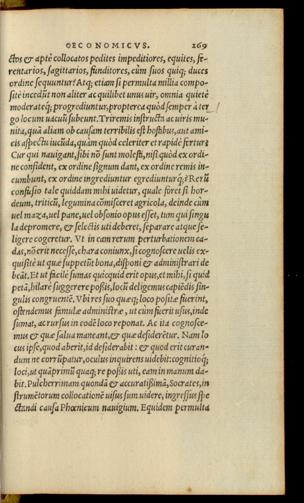 OECONOMICVS. 169
ctos & aptè collocatos pedites impeditiores, equites, fe-
rentarios, sagittarios, funditores, cùm suos quiq; duces
ordine sequuntur? Atq; etiam si permulta millia compo-
sitè incedũt non aliter ac quilibet unus uir, omnia quietè
moderateq́; progrediuntur. propterea quòd semper à ter
go locum uacuũ subeunt. Triremis instructa ac uiris mu-
nita, quã aliam ob causam terribilis est hostibus, aut ami-
cis aspectu iucũda, quàm quòd celeriter et rapidè fertur?
Cur qui nauigant, sibi nõ sunt molesti, nisi quòd ex ordi-
ne consident, ex ordine signum dant, ex ordine remis in-
cumbunt, ex ordine ingrediuntur egrediunturq́;? Rerũ
confusio tale quiddam mihi uidetur, quale foret si hor-
deum, triticũ, legumina cõmisceret agricola, deinde cùm
uel maza, uel pane, uel obsonio opus esset, tum qui singu
la depromere, & selectis uti deberet, separare atque se-
ligere cogeretur. Vt in eam rerum perturbationem ca-
das, nõ erit necesse, chara coniunx, si cognoscere uelis ex-
quisitè ut quæ suppetũt bona, disponi & administrari de
beãt. Et ut facilè sumas quicquid erit opus, et mihi, si quid
petã, hilarè suggerere possis, locũ deligemus capiẽdis sin-
gulis congruentẽ. Vbi res suo quæq; loco positæ fuerint,
ostendemus famulæ administræ, ut cùm fuerit usus, inde
sumat, ac rursus in eodẽ loco reponat. Ac ita cognosce-
mus & quæ salua maneant, & quæ desiderẽtur. Nam lo
cus ipse, quod aberit, id desiderabit: & quod erit curan-
dum ne corrũpatur, oculus inquirens uidebit: cognitioq́;
loci, ut quàmprimũ quaq; re possis uti, eam in manum da-
bit. Pulcherrimam quondã & accuratißimã, Socrates, in
strumẽtorum collocationẽ uisus sum uidere, ingressus spe
ctandi causa Phœnicum nauigium. Equidem permulta